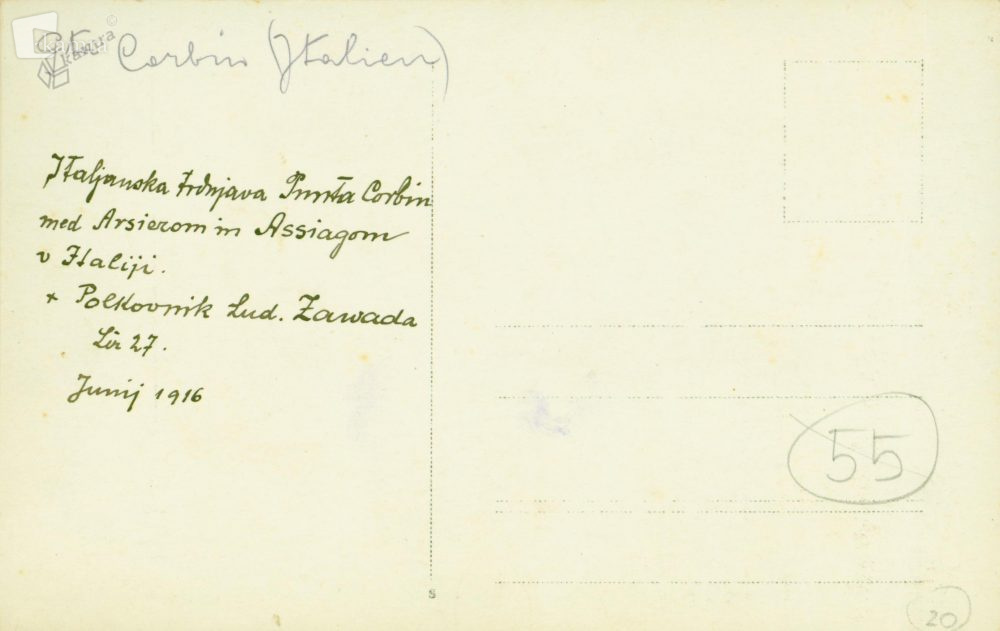 Corbin (Italien)
Kamra
©
Italjanska trdnjava Punta Corbin
med Arsierom in Assiagom
v Italiji.
+ Polkovnik Lud. Zawada
Lir 27.
Junij 1916
55
S
20